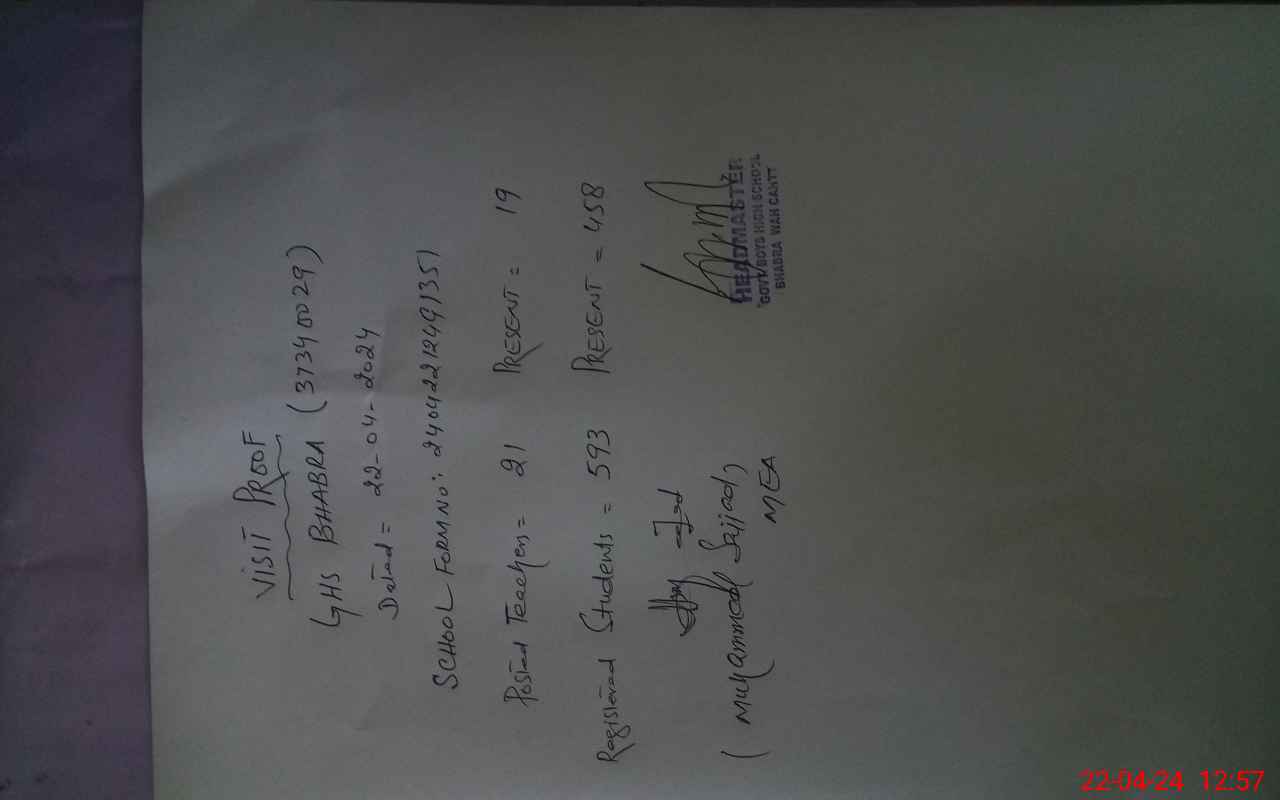 VISIT PROOF
GHS BHABRA (37340029)
Dated = 22-04-2024
SCHOOL FORM NO: 24042212491351
Posted Teachers = 21 PRESENT = 19
Registered Students = 593 PRESENT = 458
(Muhammad Sajjad)
MEA
HEADMASTER
GOVT. BOYS HIGH SCHOOL
BHABRA WAH CANTT
22-04-24 12:57